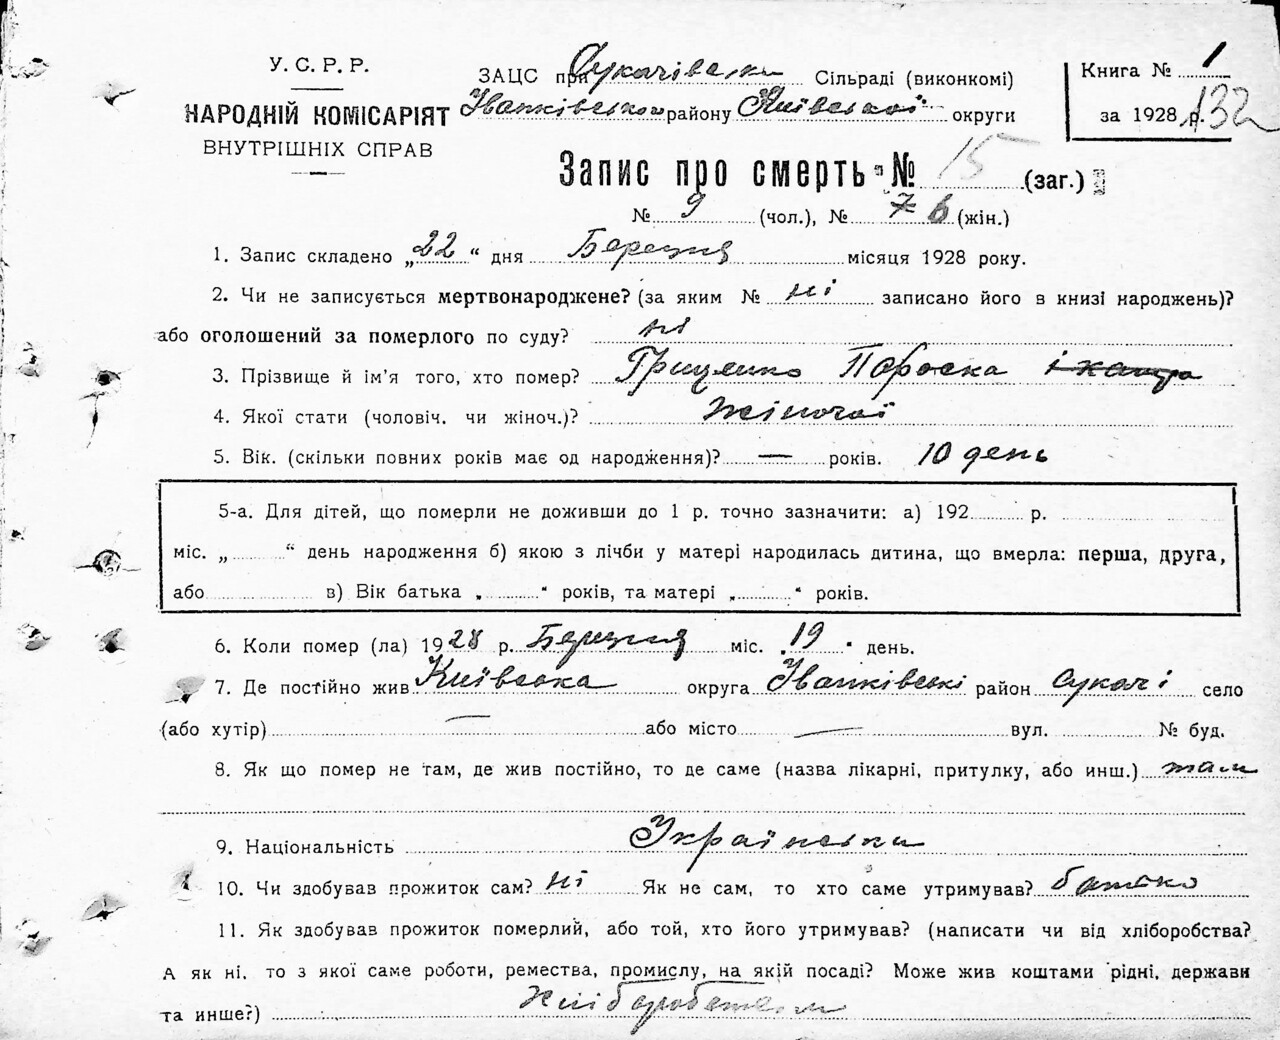 У. С. Р. Р.
НАРОДНІЙ КОМІСАРІЯТ
ВНУТРІШНІХ СПРАВ
ЗАЦС при Сукачівськи Сільраді (виконкомі)
Іванківськой району Київської округи
Книга № 1
за 1928 р. 132
Запис про смерть № 15 (заг.)
№ 9 (чол.), № 7 6 (жін.)
1. Запис складено „22“ дня Березня місяця 1928 року.
2. Чи не записується мертвонароджене? (за яким № ні записано його в книзі народжень)?
або оголошений за померлого по суду? ні
3. Прізвище й ім'я того, хто помер? Грищенко Параска
4. Якої стати (чоловіч. чи жіноч.)? жіночої
5. Вік. (скільки повних років має од народження)? — років. 10 день
5-а. Для дітей, що померли не доживши до 1 р. точно зазначити: а) 192 р.
міс. „ “ день народження б) якою з лічби у матері народилась дитина, що вмерла: перша, друга,
або в) Вік батька „ “ років, та матері „ “ років.
6. Коли помер (ла) 1928 р. Березня міс. „19“ день.
7. Де постійно жив Київська округа Іванківські район Сукачі село
(або хутір) — або місто — вул. № буд.
8. Як що помер не там, де жив постійно, то де саме (назва лікарні, притулку, або инш.) там
9. Національність Українська
10. Чи здобував прожиток сам? ні Як не сам, то хто саме утримував? батько
11. Як здобував прожиток померлий, або той, хто його утримував? (написати чи від хліборобства?
А як ні, то з якої саме роботи, ремества, промислу, на якій посаді? Може жив коштами рідні, держави
та инше?) Хліборобством